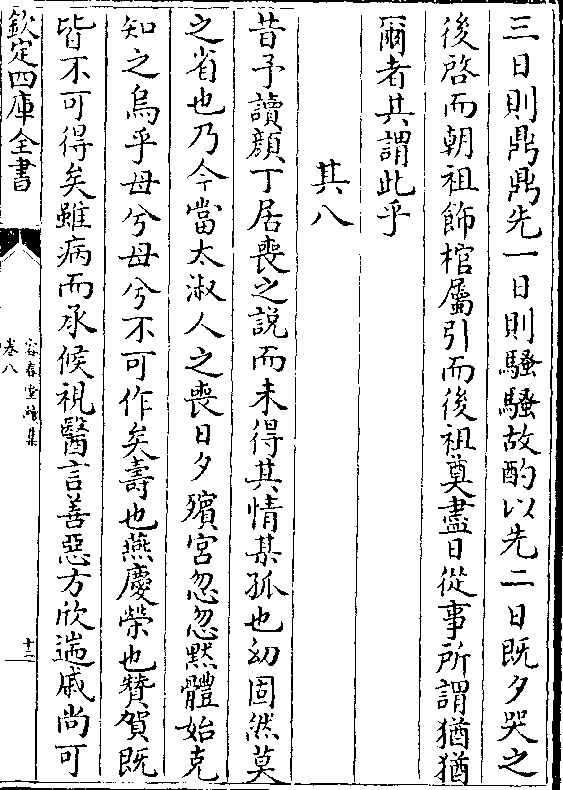 三日則鼎鼎先一日則騷騷故酌以先二日既夕哭之
後啓而朝祖飾棺屬引而後祖奠盡日從事所謂猶猶
爾者其謂此乎
其八
昔予讀顔丁居喪之說而未得其情某孤也幼固然莫
之省也乃今當太淑人之喪日夕殯宮忽忽黙體始克
知之烏乎母兮母兮不可作矣壽也燕慶榮也贊賀既
皆不可得矣雖病而承候視醫言善惡方欣遄戚尚可
欽定四庫全書
容春堂續集
卷八
十二